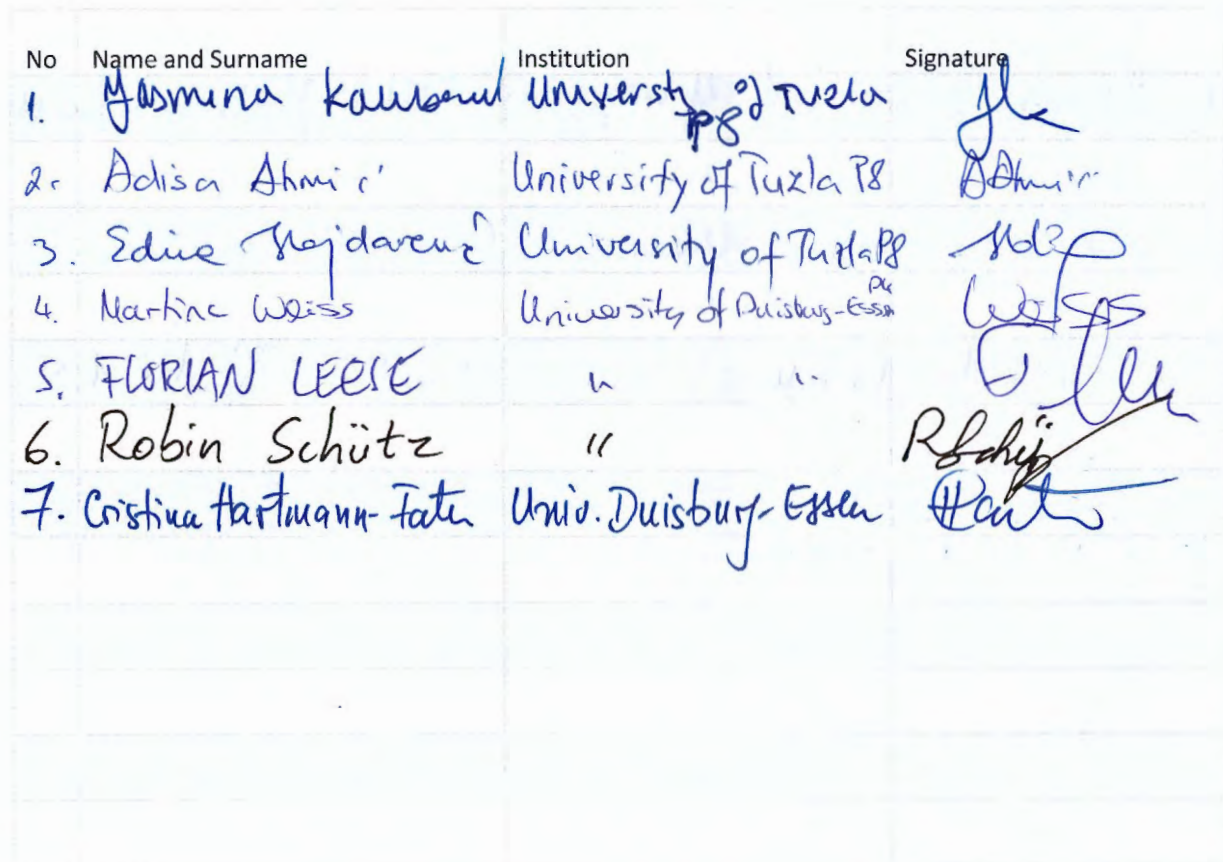 No Name and Surname Institution Signature
1. Jasmina University of Tuzla P8
2. Adisa Ahmić University of Tuzla P8 AAhmić
3. Edina Hajdarević University of Tuzla P8
4. Martina Weiss University of Duisburg-Essen P4 Weiss
5. FLORIAN LEESE " "
6. Robin Schütz " RSchütz
7. Cristina Hartmann-Fatu Univ. Duisburg-Essen